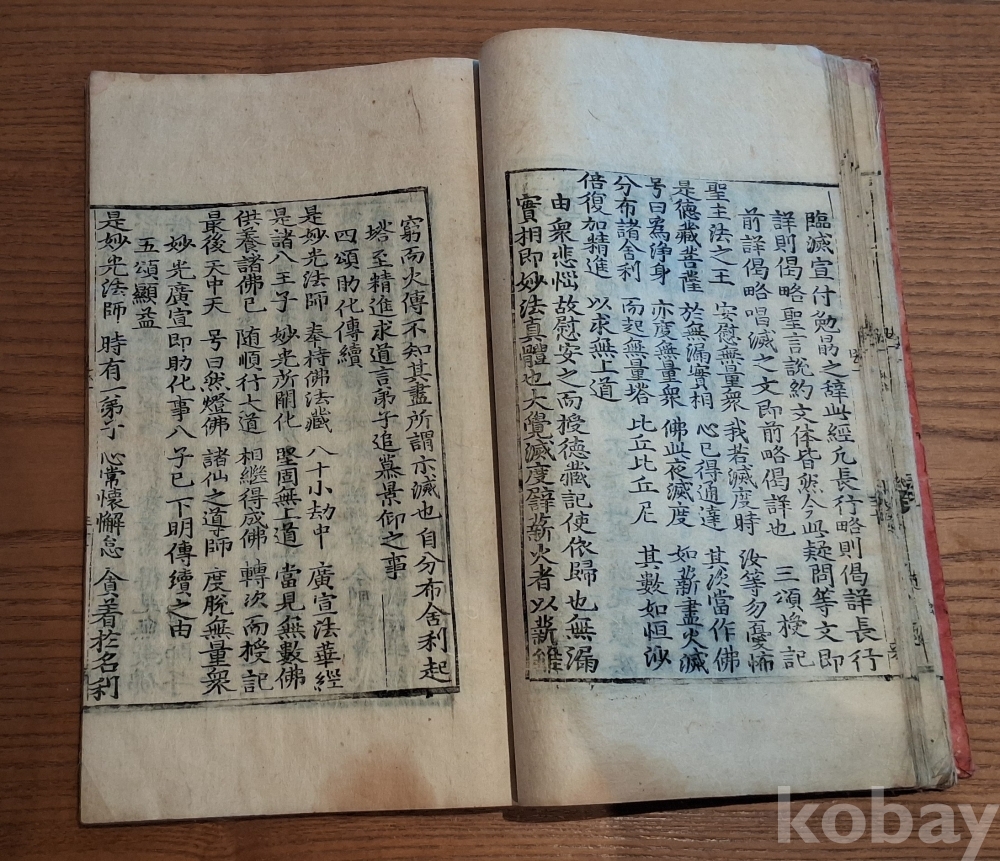 臨滅宣付勉勗之辭此經凢長行略則偈詳長行
詳則偈略聖言說約文体皆然今此疑問等文即
前詳偈略唱滅之文即前略偈詳也 三頌授記
聖主法之王 安慰無量衆 我若滅度時 汝等勿憂怖
是德藏菩薩 於無漏實相 心已得通達 其次當作佛
号曰為淨身 亦度無量衆 佛此夜滅度 如薪盡火滅
分布諸舍利 而起無量塔 比丘比丘尼 其數如恒沙
倍復加精進 以求無上道
由衆悲惱故慰安之而授德藏記使依歸也無漏
實相即妙法真體也大覺滅度譬薪火者以薪雖
窮而火傳不知其盡所謂示滅也自分布舍利起
塔至精進求道言弟子追慕景仰之事
四頌助化傳續
是妙光法師 奉持佛法藏 八十小劫中 廣宣法華經
是諸八王子 妙光所開化 堅固無上道 當見無數佛
供養諸佛已 随順行大道 相繼得成佛 轉次而授記
最後天中天 号曰然燈佛 諸仙之導師 度脫無量衆
妙光廣宣即助化事八子已下明傳續之由
五頌顯益
是妙光法師 時有一弟子 心常懷懈怠 貪着於名利
kobay